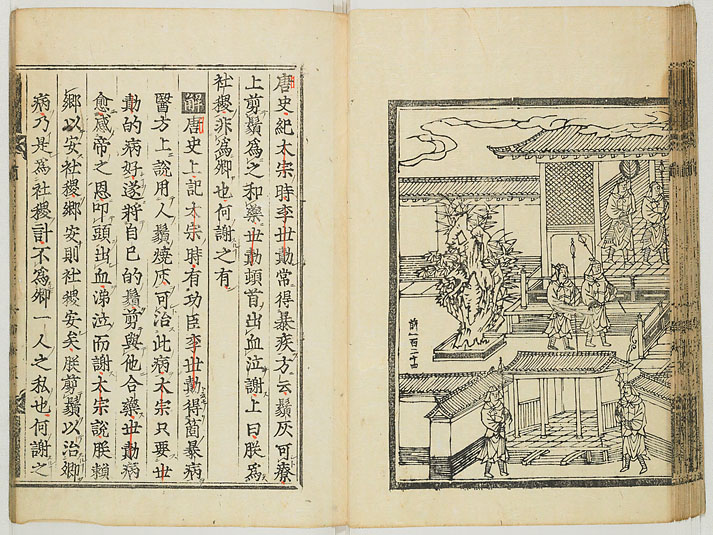 前一百二十四
唐史紀太宗時李世勣常得暴疾方云鬚灰可療
上剪鬚爲之和藥世勣頓首出血泣謝上曰朕爲
社稷非爲卿也何謝之有
解唐史上記太宗時有功臣李世勣得箇暴病
醫方上說用人鬚燒灰可治此病太宗只要世
勣的病好遂將自己的鬚剪與他合藥世勣病
愈感帝之恩叩頭出血涕泣而謝太宗說朕賴
卿以安社稷卿安則社稷安矣朕剪鬚以治卿
病乃是爲社稷計不爲卿一人之私也何謝之